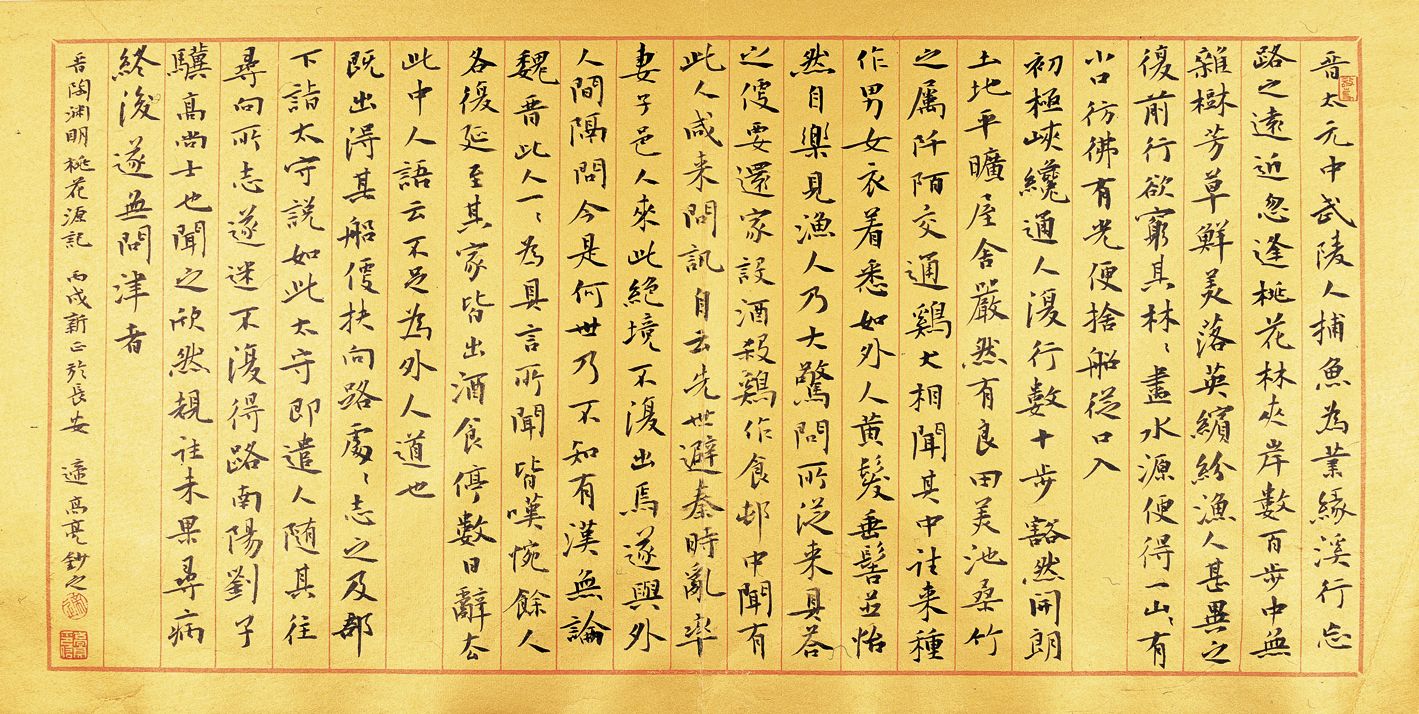 晉太元中武陵人捕魚為業緣溪行忘
路之遠近忽逢桃花林夾岸數百步中無
雜樹芳草鮮美落英繽紛漁人甚異之
復前行欲窮其林〻盡水源便得一山〻有
小口彷彿有光便捨船從口入
初極峽纔通人復行數十步豁然開朗
土地平曠屋舍嚴然有良田美池桑竹
之屬阡陌交通鷄犬相聞其中往来種
作男女衣着悉如外人黄髮垂髫並怡
然自樂見漁人乃大驚問所從来具答
之便要還家設酒殺鷄作食邨中聞有
此人咸来問訊自云先世避秦時亂率
妻子邑人來此絕境不復出焉遂與外
人間隔問今是何世乃不知有漢無論
魏晋此人一〻為具言所聞皆嘆惋餘人
各復延至其家皆出酒食停數日辭去
此中人語云不足為外人道也
既出得其船便扶向路處〻志之及郡
下詣太守說如此太守即遣人随其往
尋向所志遂迷不復得路南陽劉子
驥高尚士也聞之欣然親往未果尋病
終後遂無問津者
晋陶渊明桃花源記 丙戌新正於長安 適 高亮鈔之